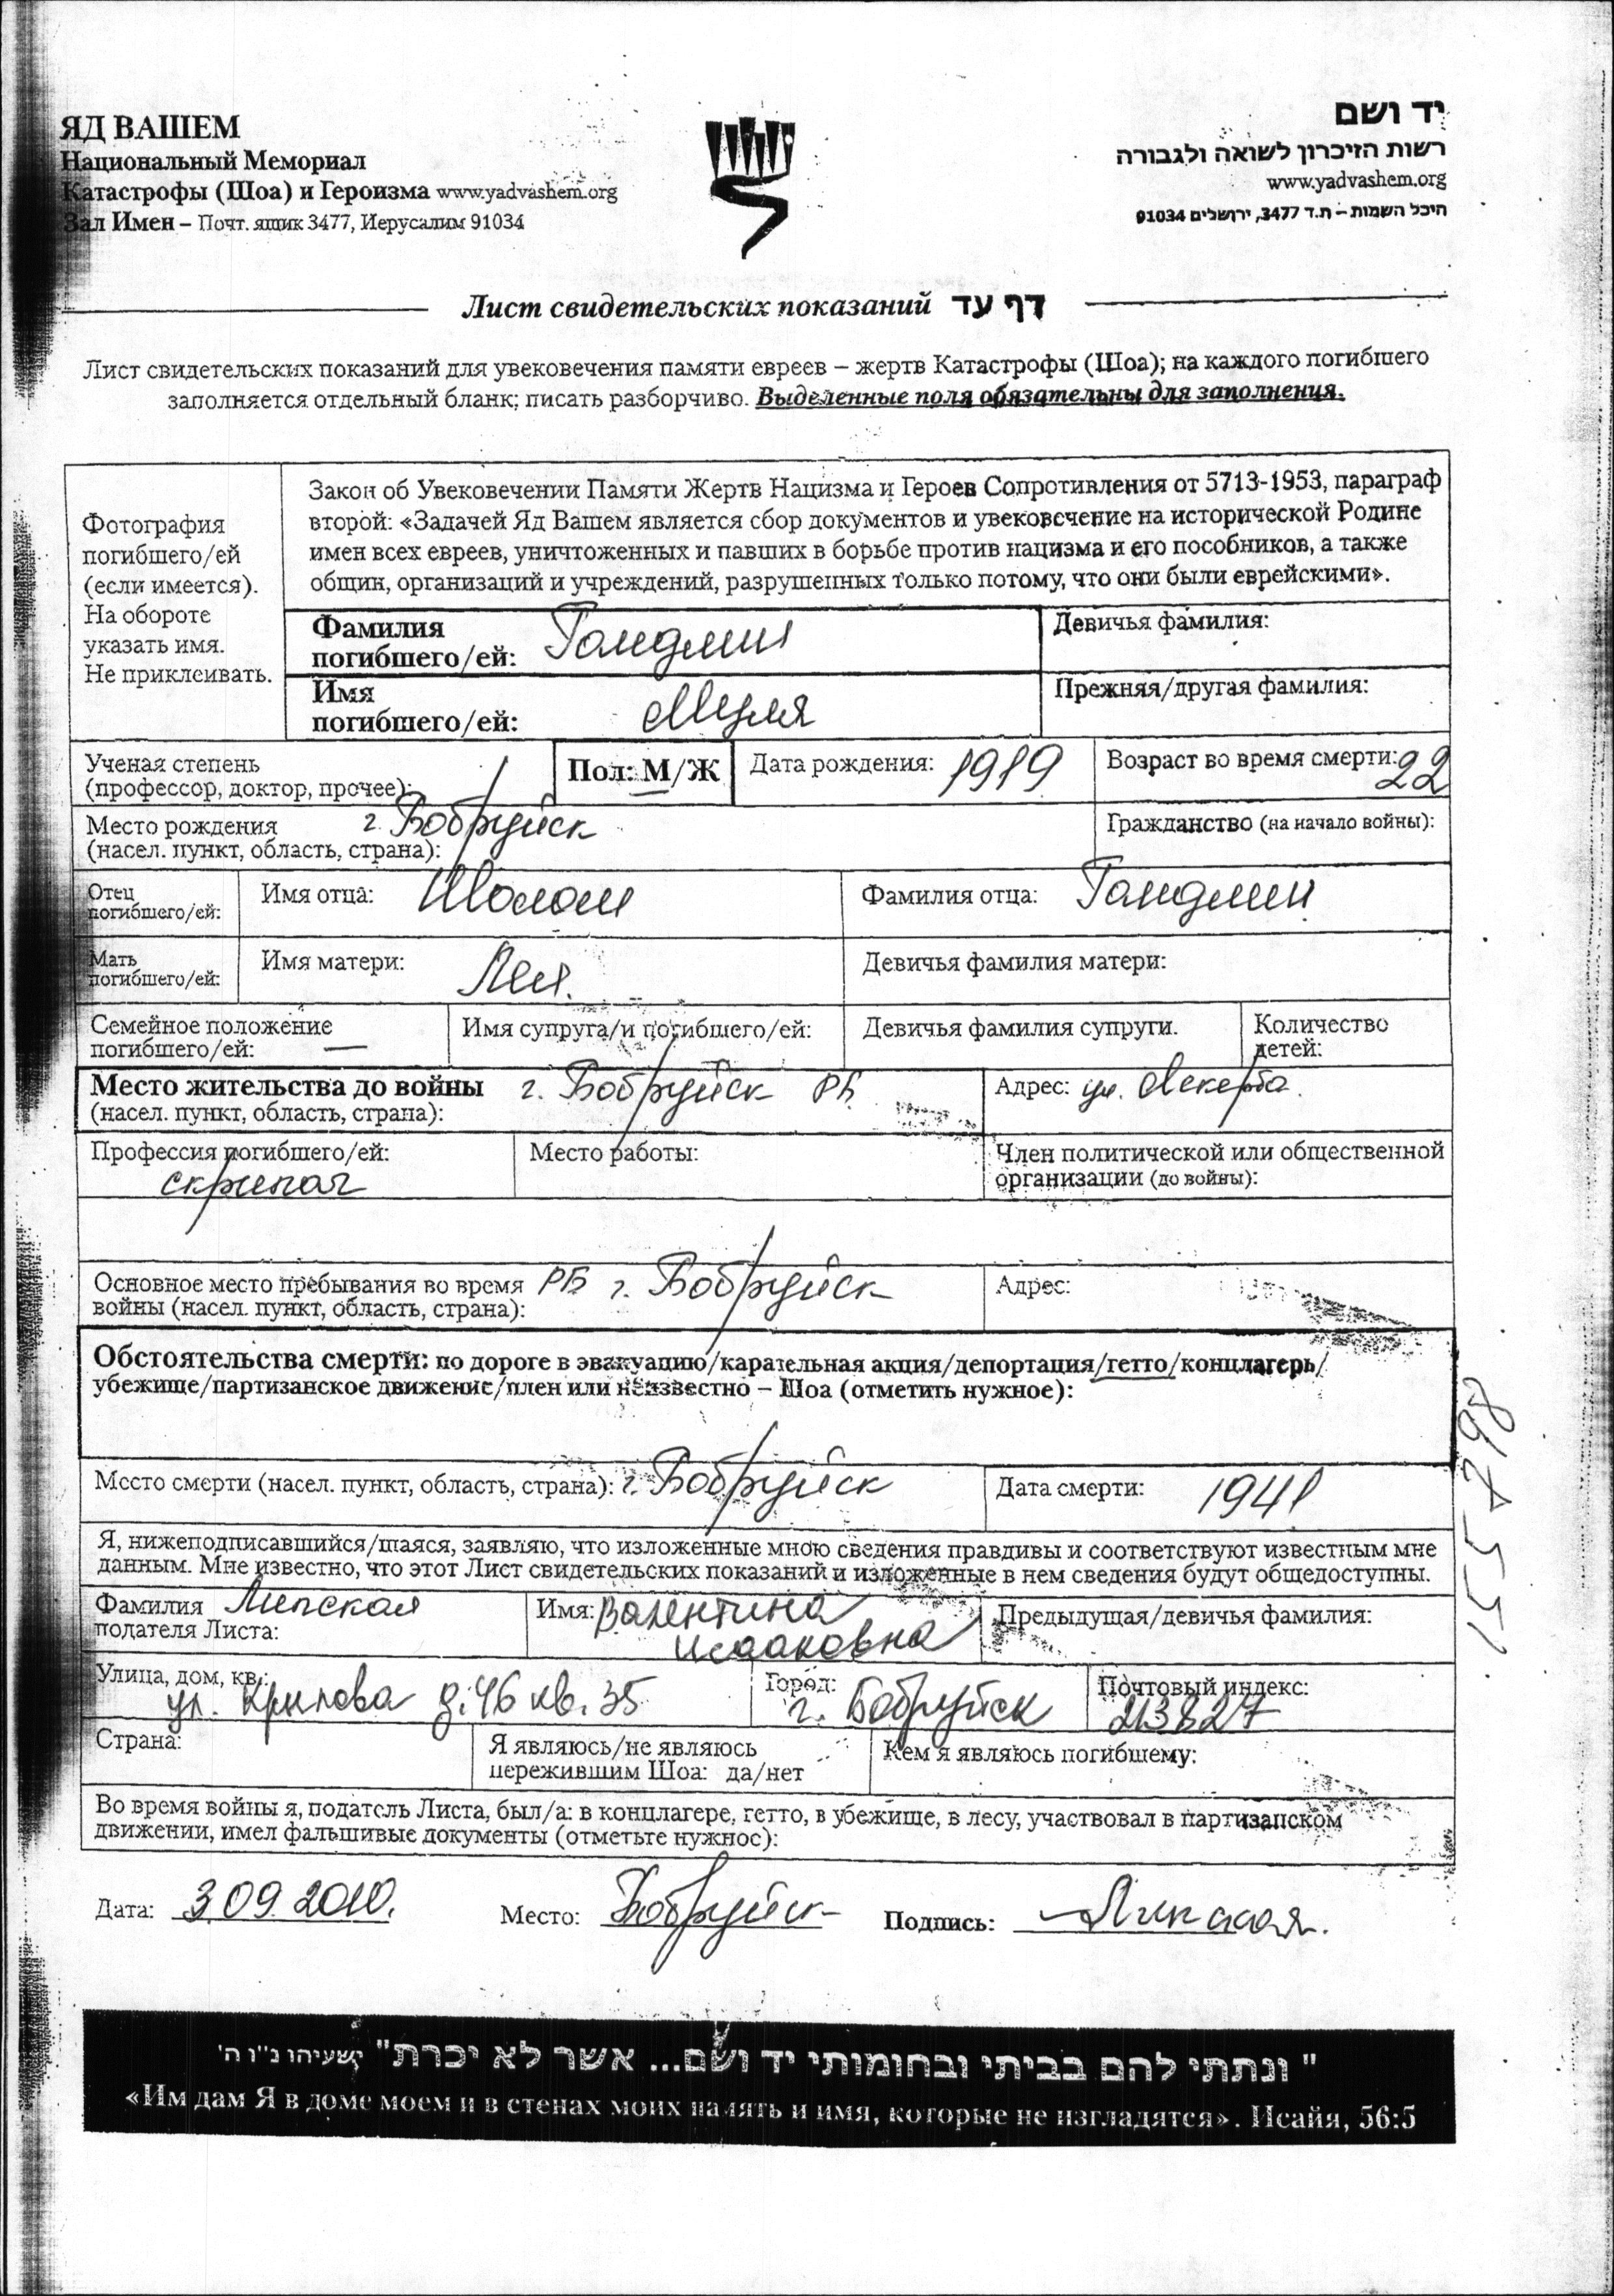 ЯД ВАШЕМ
Национальный Мемориал
Катастрофы (Шоа) и Героизма www.yadvashem.org
Зал Имен – Почт. ящик 3477, Иерусалим 91034
יד ושם
רשות הזיכרון לשואה ולגבורה
www.yadvashem.org
היכל השמות – ת.ד 3477, ירושלים 91034
Лист свидетельских показаний דף עד
Лист свидетельских показаний для увековечения памяти евреев – жертв Катастрофы (Шоа); на каждого погибшего
заполняется отдельный бланк; писать разборчиво. Выделенные поля обязательны для заполнения.
Фотография
погибшего/ей
(если имеется).
На обороте
указать имя.
Не приклеивать.
Закон об Увековечении Памяти Жертв Нацизма и Героев Сопротивления от 5713-1953, параграф
второй: «Задачей Яд Вашем является сбор документов и увековечение на исторической Родине
имен всех евреев, уничтоженных и павших в борьбе против нацизма и его пособников, а также
общин, организаций и учреждений, разрушенных только потому, что они были еврейскими».
Фамилия
погибшего/ей:
Девичья фамилия:
Имя
погибшего/ей:
Прежняя/другая фамилия:
Ученая степень
(профессор, доктор, прочее):
Пол: М/Ж
Дата рождения: 1919
Возраст во время смерти: 22
Место рождения г. Бобруйск
(насел. пункт, область, страна):
Гражданство (на начало войны):
Отец
погибшего/ей:
Имя отца: Шолом
Фамилия отца:
Мать
погибшего/ей:
Имя матери: Лея.
Девичья фамилия матери:
Семейное положение
погибшего/ей: —
Имя супруга/и погибшего/ей:
Девичья фамилия супруги.
Количество
детей:
Место жительства до войны г. Бобруйск РБ
(насел. пункт, область, страна):
Адрес: ул. Лекерта.
Профессия погибшего/ей:
скрипач
Место работы:
Член политической или общественной
организации (до войны):
Основное место пребывания во время РБ г. Бобруйск
войны (насел. пункт, область, страна):
Адрес:
Обстоятельства смерти: по дороге в эвакуацию/карательная акция/депортация/гетто/концлагерь/
убежище/партизанское движение/плен или неизвестно – Шоа (отметить нужное):
Место смерти (насел. пункт, область, страна): г. Бобруйск
Дата смерти: 1941
Я, нижеподписавшийся/шаяся, заявляю, что изложенные мною сведения правдивы и соответствуют известным мне
данным. Мне известно, что этот Лист свидетельских показаний и изложенные в нем сведения будут общедоступны.
Фамилия Липская
подателя Листа:
Имя: Валентина
Исааковна
Предыдущая/девичья фамилия:
Улица, дом, кв.:
ул. Крылова д. 46 кв. 35
Город:
г. Бобруйск
Почтовый индекс:
213827
Страна:
Я являюсь/не являюсь
пережившим Шоа: да/нет
Кем я являюсь погибшему:
Во время войны я, податель Листа, был/а: в концлагере, гетто, в убежище, в лесу, участвовал в партизанском
движении, имел фальшивые документы (отметьте нужное):
Дата: 3.09.2010. Место: Бобруйск Подпись: Липская.
" ונתתי להם בביתי ובחומותי יד ושם... אשר לא יכרת" ישעיהו נ"ו ה'
«Им дам Я в доме моем и в стенах моих память и имя, которые не изгладятся». Исайя, 56:5